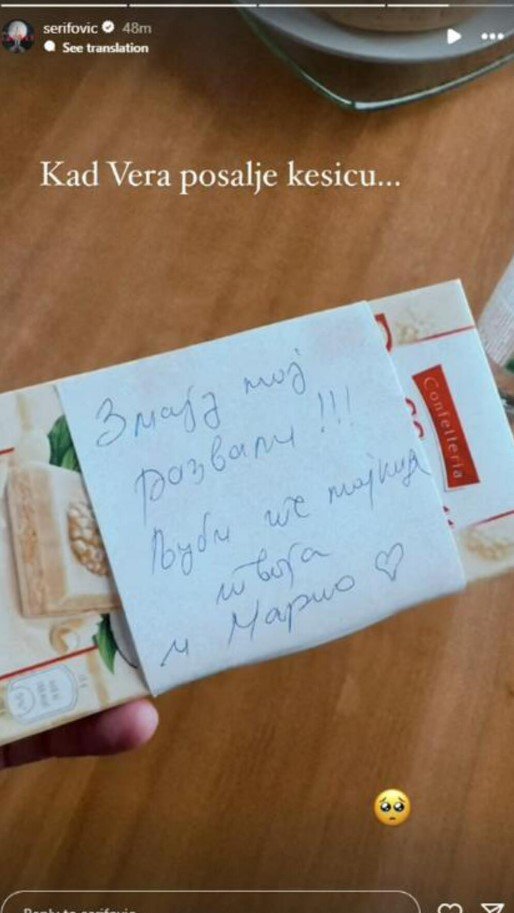 serifovic 48m
See translation
Kad Vera posalje kesicu...
Змају мој
развали !!!
Љуби те мајкица
твоја
и Марио ♡
Confetteria
🥺
Reply to serifovic